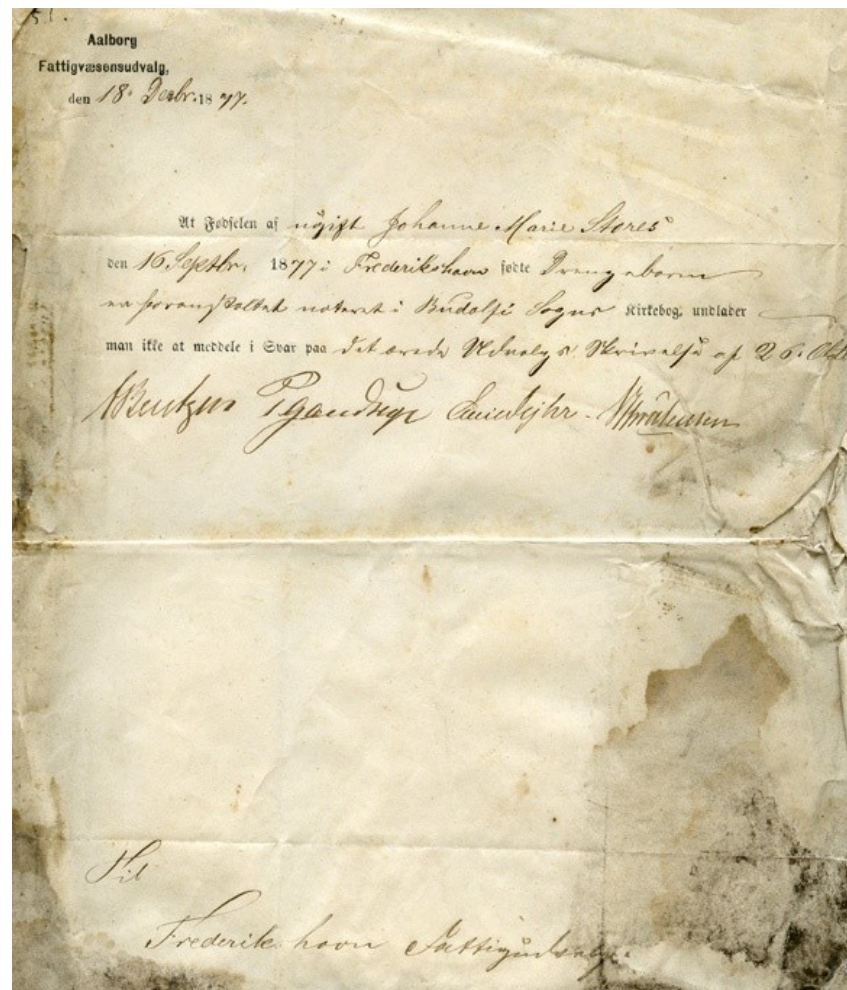 51.
Aalborg
Fattigvæsensudvalg,
den 18. Decbr. 1877.
At Fødselen af ugift Johanne Marie Stores
den 16 Septbr. 1877 i Frederikshavn fødte Drengebarn
er foranstaltet noteret i Budolfi Sogns Kirkebog, undlader
man ikke at meddele i Svar paa det ærede Udvalgs Skrivelse af 26.
Til
Frederikshavn Fattigudvalg.